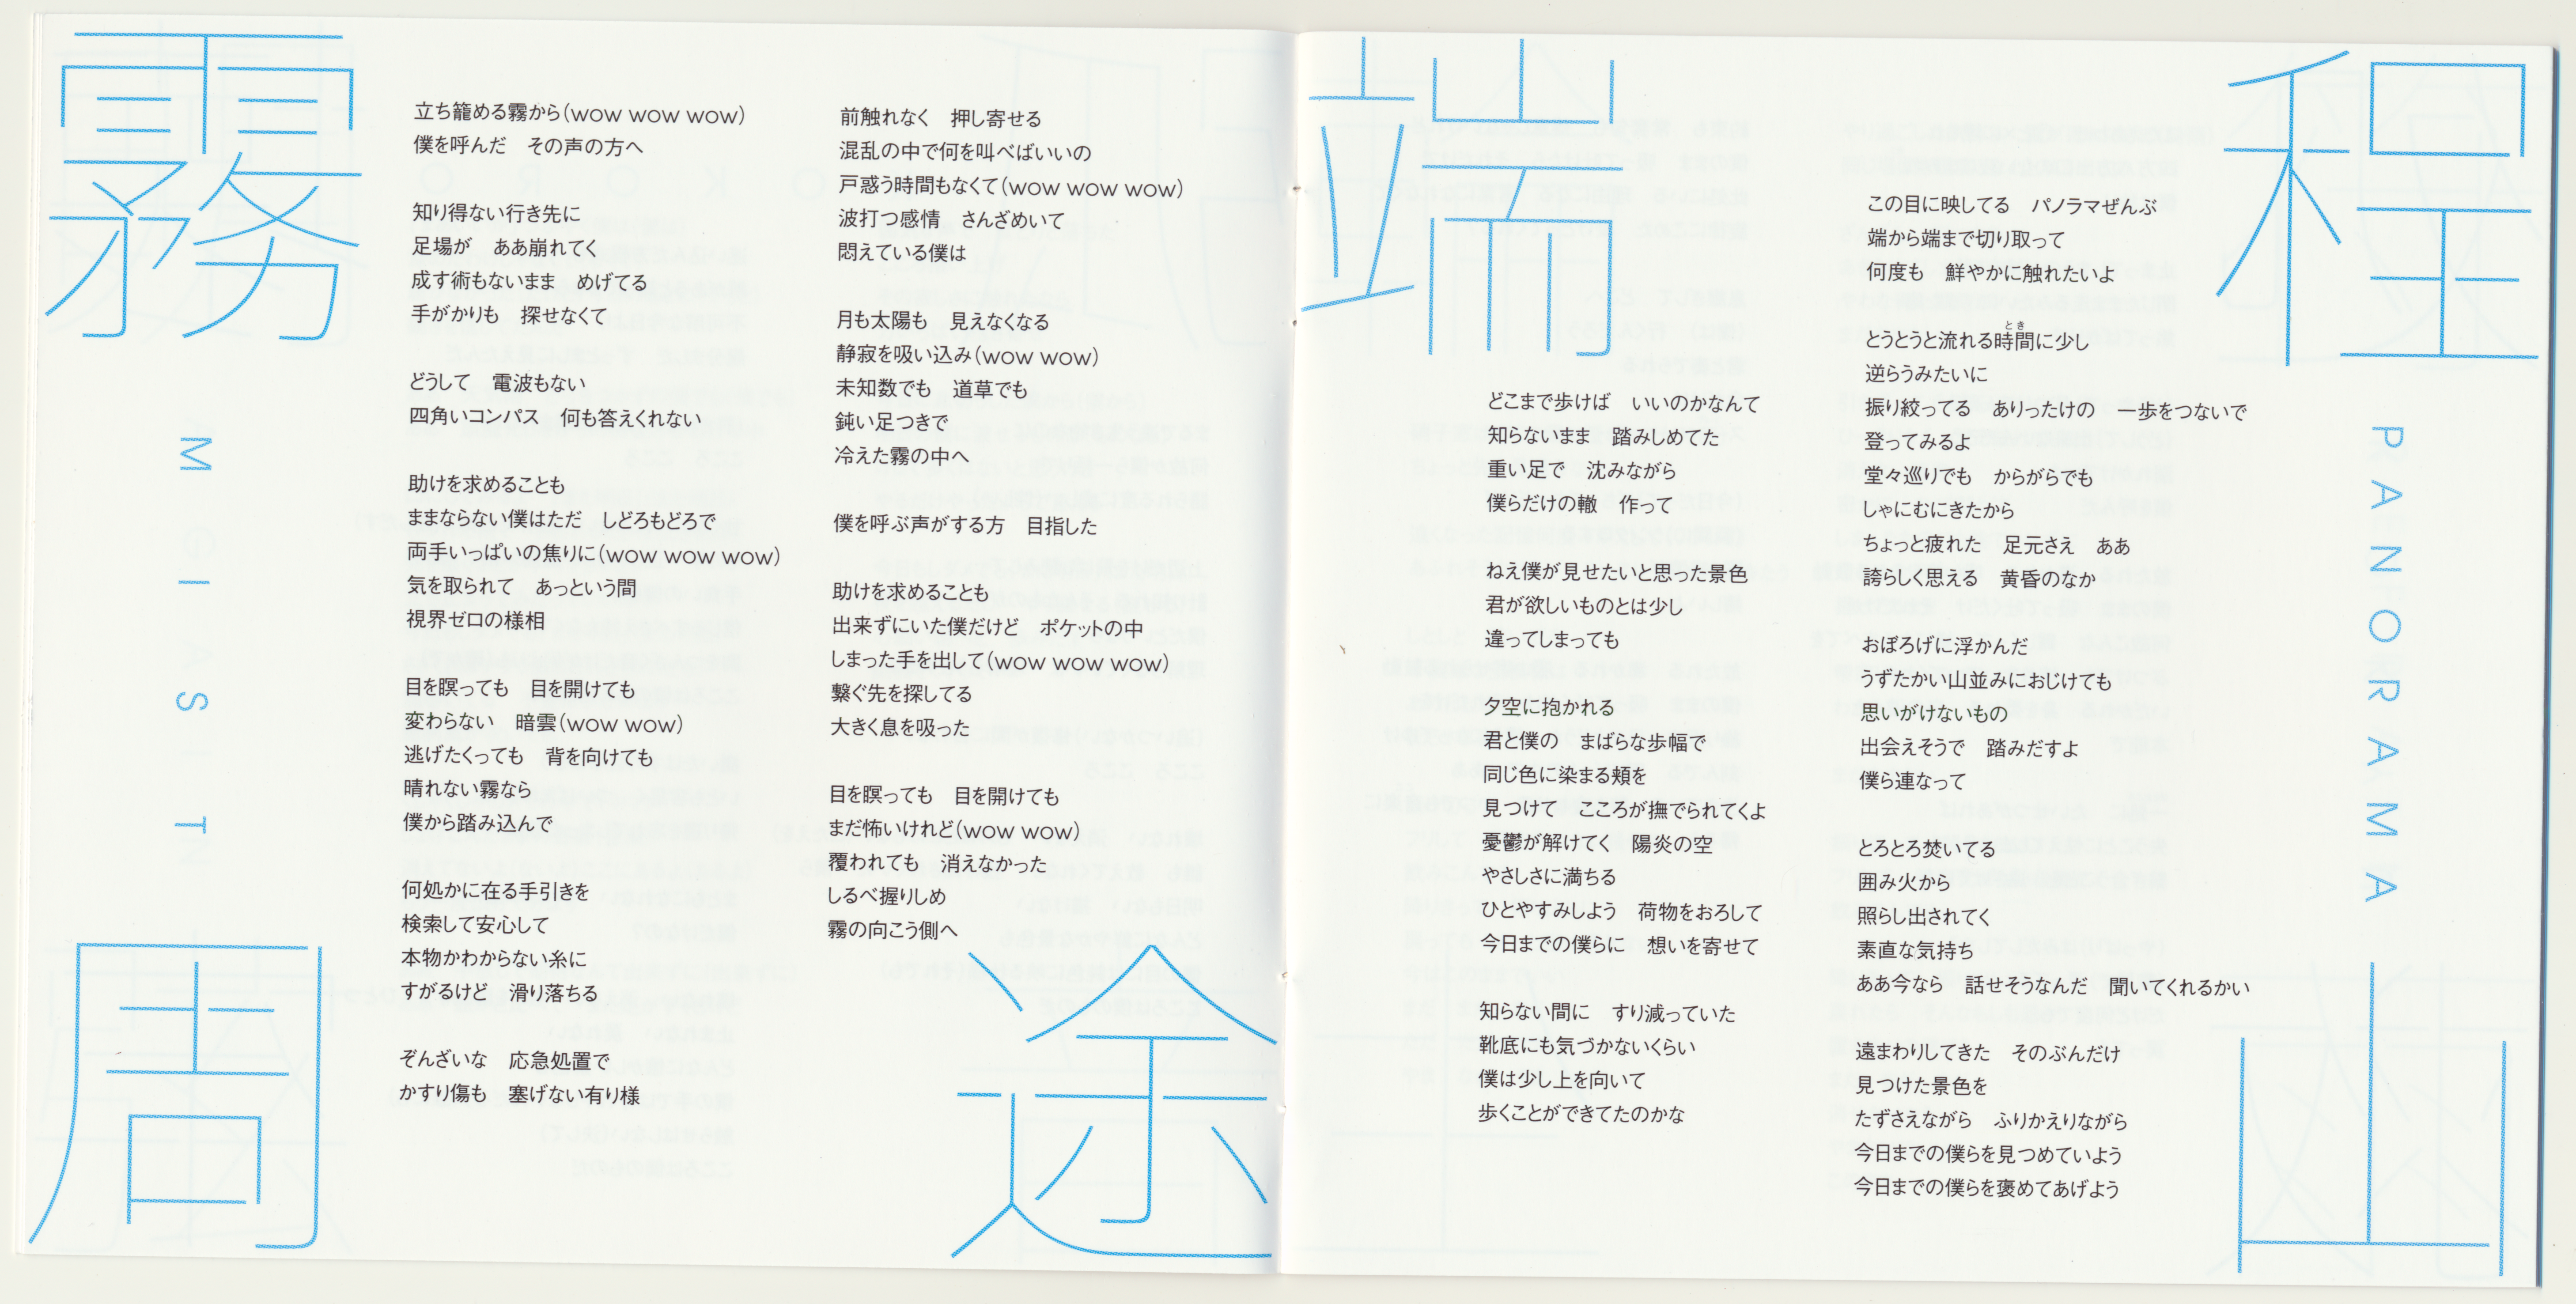 霧
MIST
周
途
立ち籠める霧から(wow wow wow)
僕を呼んだ　その声の方へ
知り得ない行き先に
足場が　ああ崩れてく
成す術もないまま　めげてる
手がかりも　探せなくて
どうして　電波もない
四角いコンパス　何も答えくれない
助けを求めることも
ままならない僕はただ　しどろもどろで
両手いっぱいの焦りに(wow wow wow)
気を取られて　あっという間
視界ゼロの様相
目を瞑っても　目を開けても
変わらない　暗雲(wow wow)
逃げたくっても　背を向けても
晴れない霧なら
僕から踏み込んで
何処かに在る手引きを
検索して安心して
本物かわからない糸に
すがるけど　滑り落ちる
ぞんざいな　応急処置で
かすり傷も　塞げない有り様
前触れなく　押し寄せる
混乱の中で何を叫べばいいの
戸惑う時間もなくて(wow wow wow)
波打つ感情　さんざめいて
悶えている僕は
月も太陽も　見えなくなる
静寂を吸い込み(wow wow)
未知数でも　道草でも
鈍い足つきで
冷えた霧の中へ
僕を呼ぶ声がする方　目指した
助けを求めることも
出来ずにいた僕だけど　ポケットの中
しまった手を出して(wow wow wow)
繋ぐ先を探してる
大きく息を吸った
目を瞑っても　目を開けても
まだ怖いけれど(wow wow)
覆われても　消えなかった
しるべ握りしめ
霧の向こう側へ
端
程
PANORAMA
山
どこまで歩けば　いいのかなんて
知らないまま　踏みしめてた
重い足で　沈みながら
僕らだけの轍　作って
ねえ僕が見せたいと思った景色
君が欲しいものとは少し
違ってしまっても
夕空に抱かれる
君と僕の　まばらな歩幅で
同じ色に染まる頬を
見つけて　こころが撫でられてくよ
憂鬱が解けてく　陽炎の空
やさしさに満ちる
ひとやすみしよう　荷物をおろして
今日までの僕らに　想いを寄せて
知らない間に　すり減っていた
靴底にも気づかないくらい
僕は少し上を向いて
歩くことができてたのかな
この目に映してる　パノラマぜんぶ
端から端まで切り取って
何度も　鮮やかに触れたいよ
とき
とうとうと流れる時間に少し
逆らうみたいに
振り絞ってる　ありったけの　一歩をつないで
登ってみるよ
堂々巡りでも　からがらでも
しゃにむにきたから
ちょっと疲れた　足元さえ　ああ
誇らしく思える　黄昏のなか
おぼろげに浮かんだ
うずたかい山並みにおじけても
思いがけないもの
出会えそうで　踏みだすよ
僕ら連なって
とろとろ焚いてる
囲み火から
照らし出されてく
素直な気持ち
ああ今なら　話せそうなんだ　聞いてくれるかい
遠まわりしてきた　そのぶんだけ
見つけた景色を
たずさえながら　ふりかえりながら
今日までの僕らを見つめていよう
今日までの僕らを褒めてあげよう